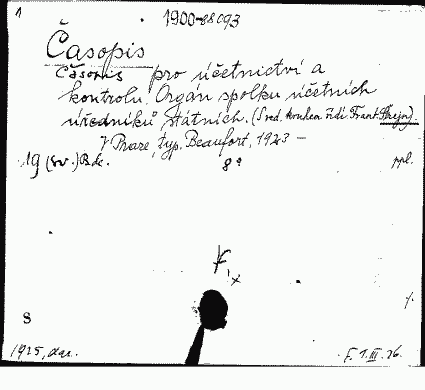 1
1900-88093
Časopis
Časopis pro účetnictví a
kontrolu. Orgán spolku účetních
úředníků státních. (Sved. řídí Frant.
V Praze, typ. Beaufort, 1923 —
19 (sv.) Bde. 8° ppl.
F, x
8
1925, dar. F. 1. III. 26.